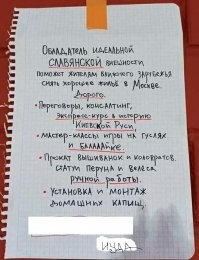 Обладатель идеальной
СЛАВЯНСКОЙ внешности
поможет жителям ближнего зарубежья
снять хорошее жильё в Москве.
Дорого.
• Переговоры, консалтинг,
Экспресс-курс в историю
Киевской Руси.
• Мастер-классы игры на гуслях
и балалайке
• Прокат вышиванок и коловратов,
статуи Перуна и Велеса
ручной работы.
• Установка и монтаж
домашних капищ.